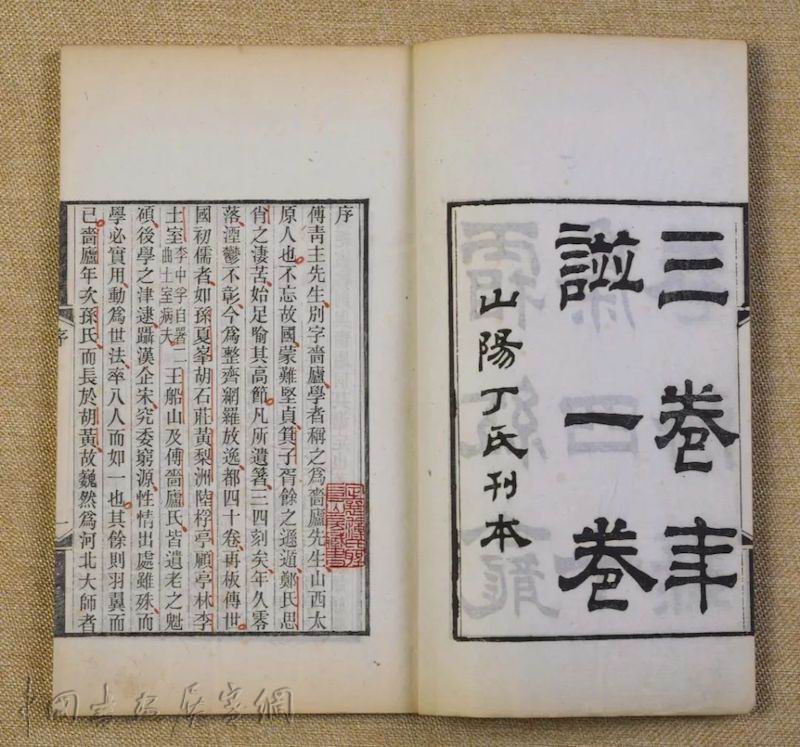 三卷年
譜一卷
山陽丁氏刊本
序
傅青主先生別字嗇廬學者稱之爲嗇廬先生山西太
原人也不忘故國蒙難堅貞箕子胥餘之遯遁鄭氏思
肖之淒苦始足喻其高節凡所遺箸三四刻矣年久零
落湮鬱不彰今爲整齊網羅放逸都四十卷再板傳世
國初儒者如孫夏峯胡石莊黃梨洲陸桴亭顧亭林李
土室李中孚自署二曲土室病夫王船山及傅嗇廬氏皆遺老之魁
碩後學之津逮躡漢企宋究委窮源性情出處雖殊而
學必實用動爲世法率八人而如一也其餘則羽翼而
已嗇廬年次孫氏而長於胡黃故巍然爲河北大師者
序
一